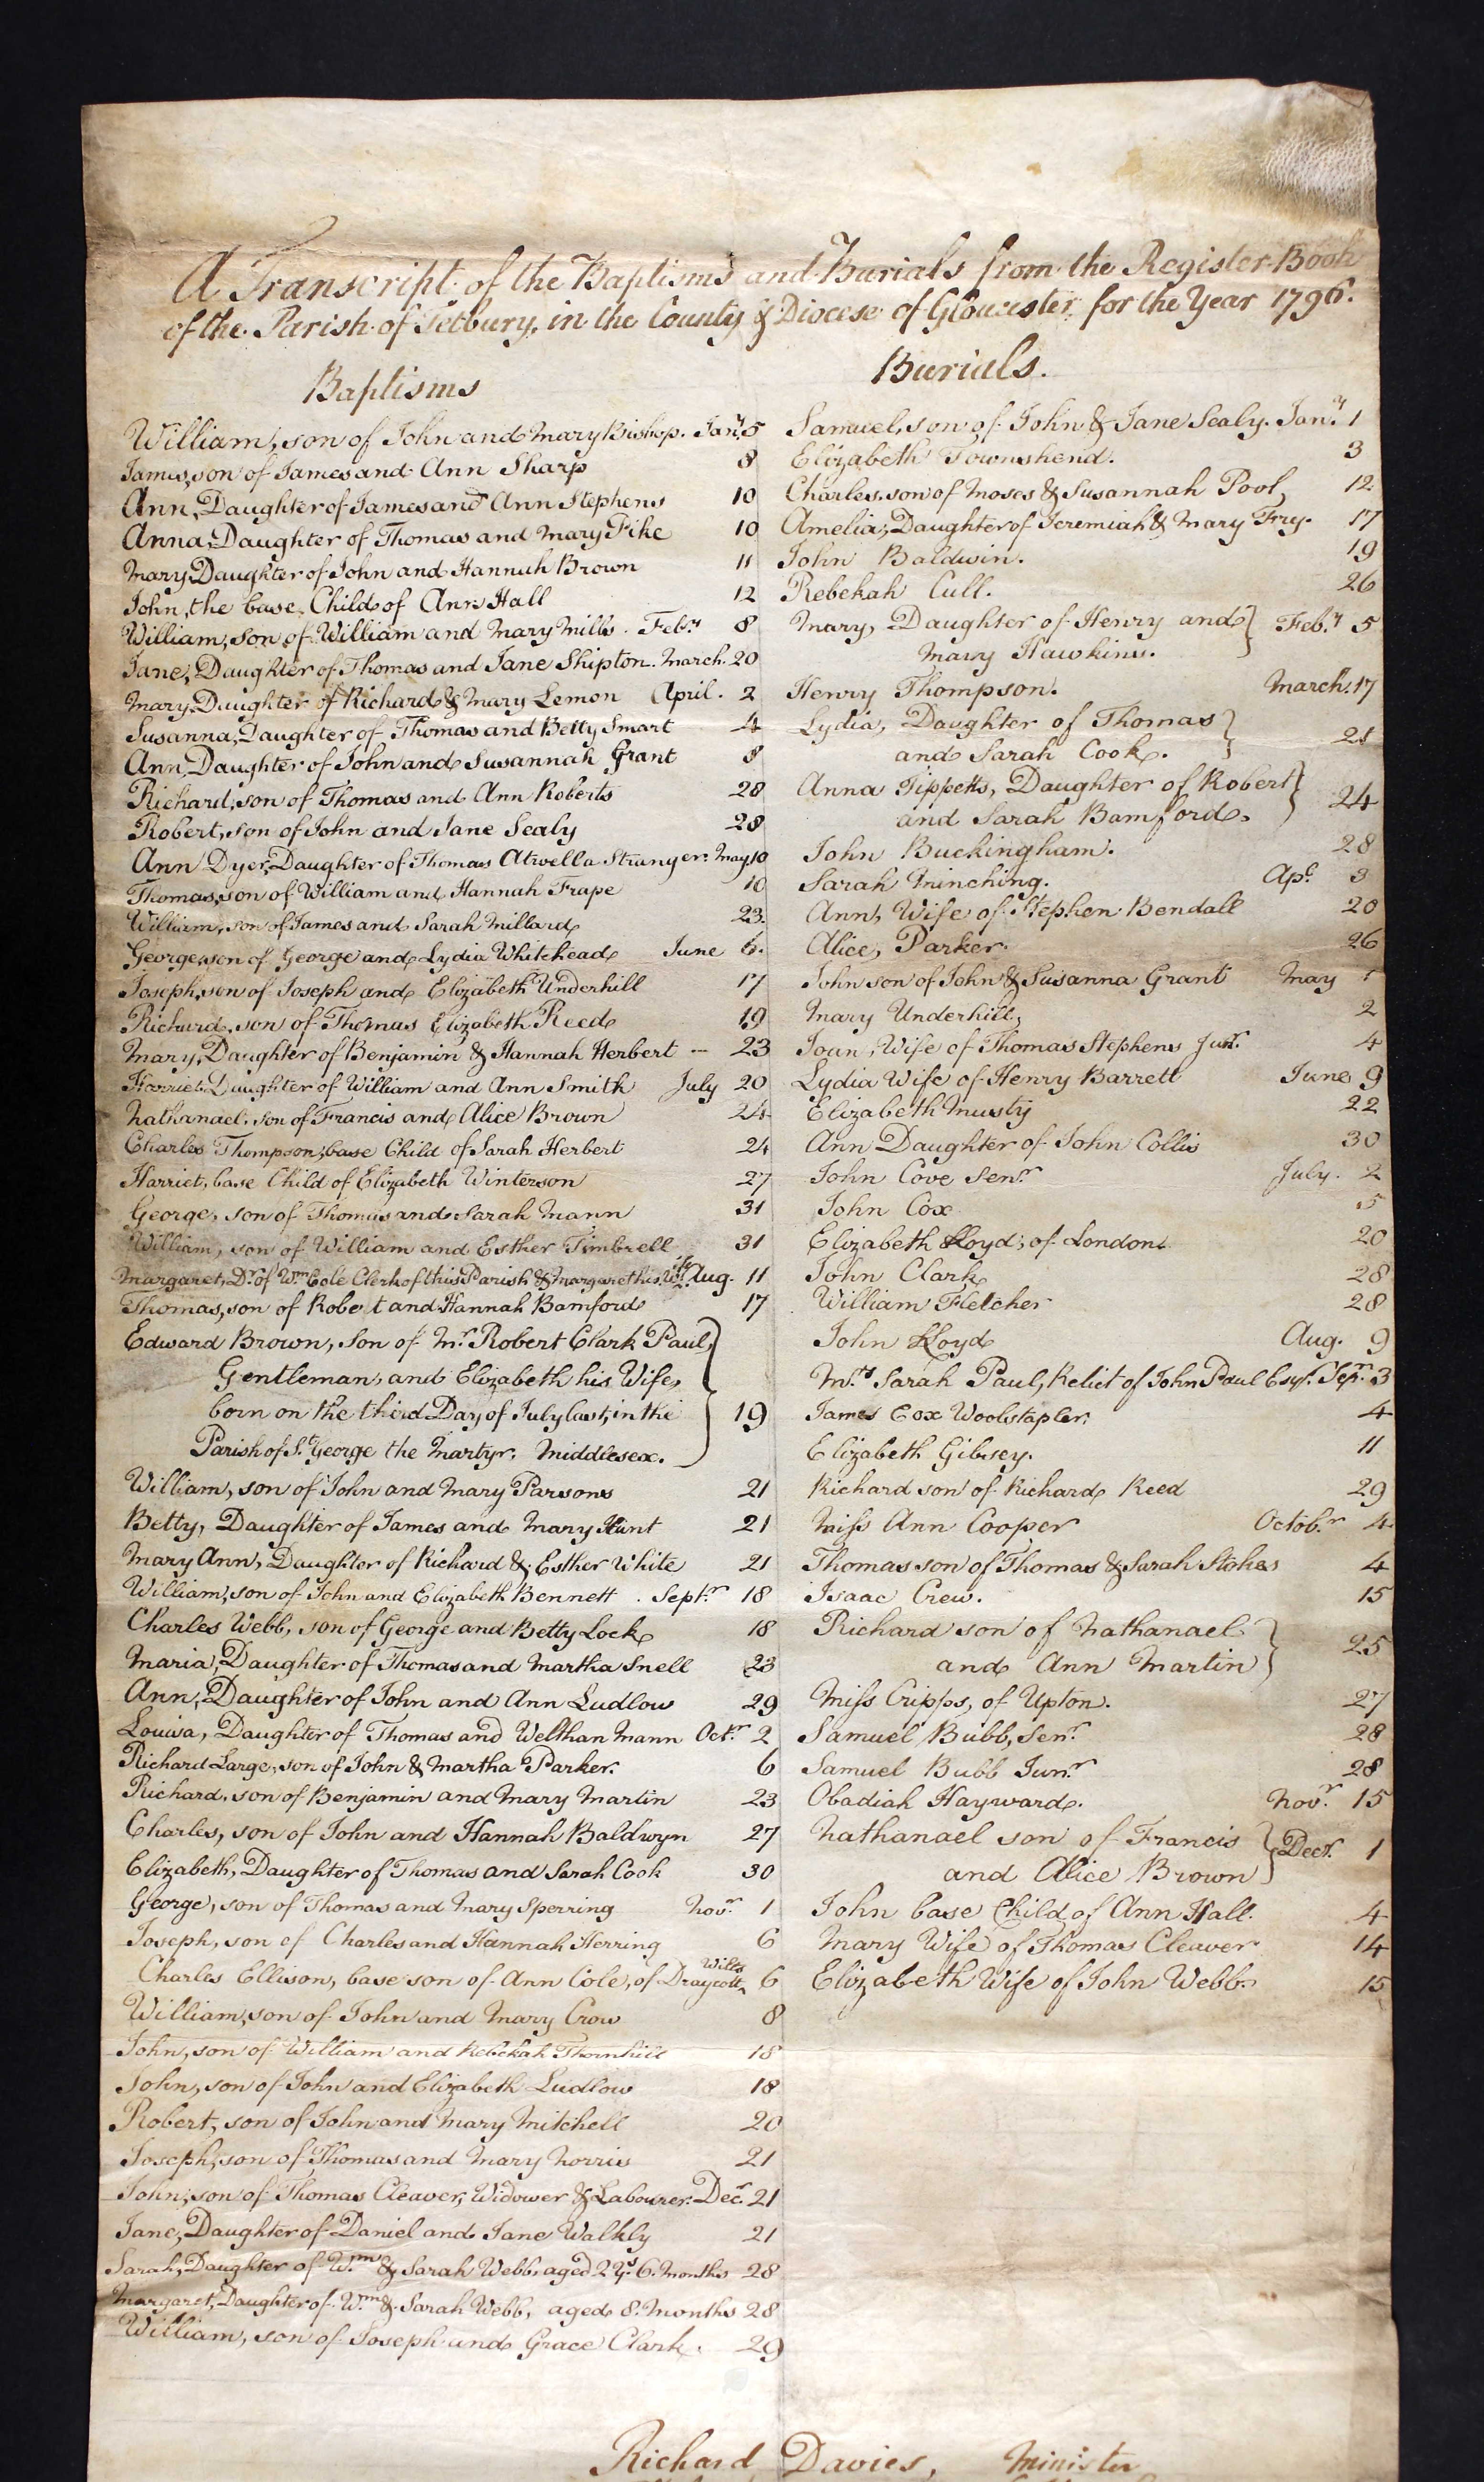 A Transcript of the Baptisms and Burials from the Register Book
of the Parish of Tetbury, in the County & Diocese of Gloucester for the Year 1796.
Baptisms
William, son of John and Mary Bishop. Jan.y 5
James, son of James and Ann Sharp 8
Ann, Daughter of James and Ann Stephens 10
Anna, Daughter of Thomas and Mary Pike 10
Mary, Daughter of John and Hannah Brown 11
John, the base Child of Ann Hall 12
William, son of William and Mary Mills. Feb.y 8
Jane, Daughter of Thomas and Jane Shipton. March. 20
Mary, Daughter of Richard & Mary Lemon April. 2
Susanna, Daughter of Thomas and Betty Smart 4
Ann, Daughter of John and Susannah Grant 8
Richard, son of Thomas and Ann Roberts 28
Robert, son of John and Jane Sealy 28
Ann Dyer, Daughter of Thomas Atwell a Stranger. May. 10
Thomas, son of William and Hannah Frape 10
William, son of James and Sarah Millard 23.
George, son of George and Lydia Whitehead June 6.
Joseph, son of Joseph and Elizabeth Underhill 17
Richard, son of Thomas Elizabeth Reed 19
Mary, Daughter of Benjamin & Hannah Herbert -- 23
Harriet, Daughter of William and Ann Smith July 20
Nathanael, son of Francis and Alice Brown 24
Charles Thompson, base Child of Sarah Herbert 24
Harriet, base Child of Elizabeth Winterson 27
George, son of Thomas and Sarah Mann 31
William, son of William and Esther Timbrell 31
Margaret, Dr. of Wm. Cole Clerk of this Parish & Margaret his Wife. Aug. 11
Thomas, son of Robert and Hannah Bamford 17
Edward Brown, Son of Mr. Robert Clark Paul,
Gentleman, and Elizabeth his Wife,
born on the third Day of July last, in the 19
Parish of St. George the Martyr. Middlesex.
William, son of John and Mary Parsons 21
Betty, Daughter of James and Mary Hunt 21
Mary Ann, Daughter of Richard & Esther White 21
William, son of John and Elizabeth Bennett. Sept.r 18
Charles Webb, son of George and Betty Lock 18
Maria, Daughter of Thomas and Martha Snell 23
Ann, Daughter of John and Ann Ludlow 29
Louisa, Daughter of Thomas and Welthan Mann Oct.r 2
Richard Large, son of John & Martha Parker. 6
Richard, son of Benjamin and Mary Martin 23
Charles, son of John and Hannah Baldwyn 27
Elizabeth, Daughter of Thomas and Sarah Cook 30
George, son of Thomas and Mary Sperring Nov.r 1
Joseph, son of Charles and Hannah Herring 6
Charles Ellison, base son of Ann Cole, of Draycott, Wilts 6
William, son of John and Mary Crow 8
John, son of William and Rebekah Thornhill 18
John, son of John and Elizabeth Ludlow 18
Robert, son of John and Mary Mitchell 20
Joseph, son of Thomas and Mary Norris 21
John, son of Thomas Cleaver, Widower & Labourer. Dec.r 21
Jane, Daughter of Daniel and Jane Walkly 21
Sarah, Daughter of Wm. & Sarah Webb, aged 2 Ys. 6. Months 28
Margaret, Daughter of Wm. & Sarah Webb, aged 8. Months 28
William, son of Joseph and Grace Clark. 29
Burials.
Samuel, son of John & Jane Sealy. Jan.y 1
Elizabeth Townshend. 3
Charles, son of Moses & Susannah Pool, 12
Amelia, Daughter of Jeremiah & Mary Fry. 17
John Baldwin. 19
Rebekah Cull. 26
Mary, Daughter of Henry and Feb.y 5
Mary Hawkins.
Henry Thompson. March. 17
Lydia, Daughter of Thomas
and Sarah Cook. 21
Anna Tippetts, Daughter of Robert
and Sarah Bamford. 24
John Buckingham. 28
Sarah Minching. Apl. 3
Ann, Wife of Stephen Bendall 20
Alice, Parker. 26
John son of John & Susanna Grant May 1
Mary Underhill, 2
Joan, Wife of Thomas Stephens Junr. 4
Lydia Wife of Henry Barrett June 9
Elizabeth Musty 22
Ann Daughter of John Collis 30
John Cove Sen.r July. 2
John Cox 5
Elizabeth Lloyd, of London 20
John Clark 28
William Fletcher 28
John Lloyd Aug. 9
Mrs. Sarah Paul, Relict of John Paul Esqr. Sepr. 3
James Cox Woolstapler. 4
Elizabeth Gibsey. 11
Richard son of Richard Reed 29
Miss Ann Cooper Octob.r 4
Thomas son of Thomas & Sarah Stokes 4
Isaac Crew. 15
Richard son of Nathanael
and Ann Martin 25
Miss Cripps, of Upton. 27
Samuel Bubb, Sen.r 28
Samuel Bubb Jun.r 28
Obadiah Hayward. Nov.r 15
Nathanael son of Francis Decr. 1
and Alice Brown
John base Child of Ann Hall. 4
Mary Wife of Thomas Cleaver 14
Elizabeth Wife of John Webb. 15
Richard Davies, Minister